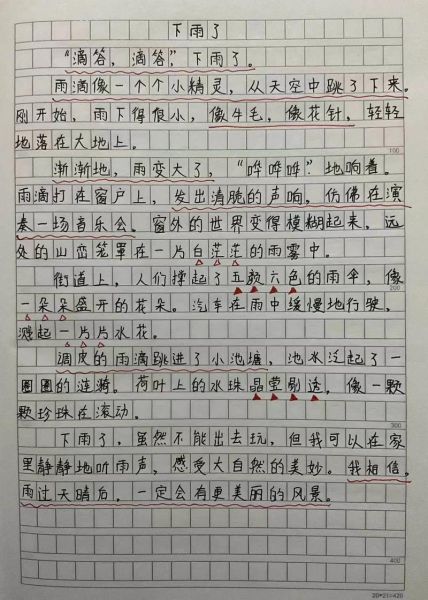 下雨了
“滴答，滴答”，下雨了。
雨滴像一个个小精灵，从天空中跳了下来。
刚开始，雨下得很小，像牛毛，像花针，轻轻
地落在大地上。
100
渐渐地，雨变大了，“哗哗哗”地响着。
雨滴打在窗户上，发出清脆的声响，仿佛在演
奏一场音乐会。窗外的世界变得模糊起来，远
处的山峦笼罩在一片白茫茫的雨雾中。
街道上，人们撑起了五颜六色的雨伞，像
200
一朵朵盛开的花朵。汽车在雨中缓慢地行驶，
溅起一片片水花。
调皮的雨滴跳进了小池塘，池水泛起了一
圈圈的涟漪。荷叶上的水珠晶莹剔透，像一颗
颗珍珠在滚动。
300
下雨了，虽然不能出去玩，但我可以在家
里静静地听雨声，感受大自然的美妙。我相信。
雨过天晴后，一定会有更美丽的风景。
400
20*21=420